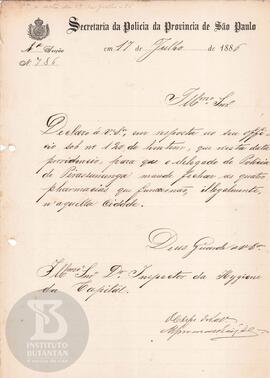 Secretaria da Policia da Provincia de São Paulo
em 17 de Julho de 1886
Nº 786
Illmo Snr
Declaro a V. Sª em resposta ao seu officio
sob nº 120 de hontem, que nesta data
providencio, para que o delegado de Policia
de Pirassununga mande fechar as quatro
pharmacias que funccionão, illegalmente,
n'aquella Cidade.
Deus Guarde a V. Sª
Illmo Snr Dr Inspector da Hygiene
da Capital.
O Chefe de
INSTITUTO
BUTANTAN